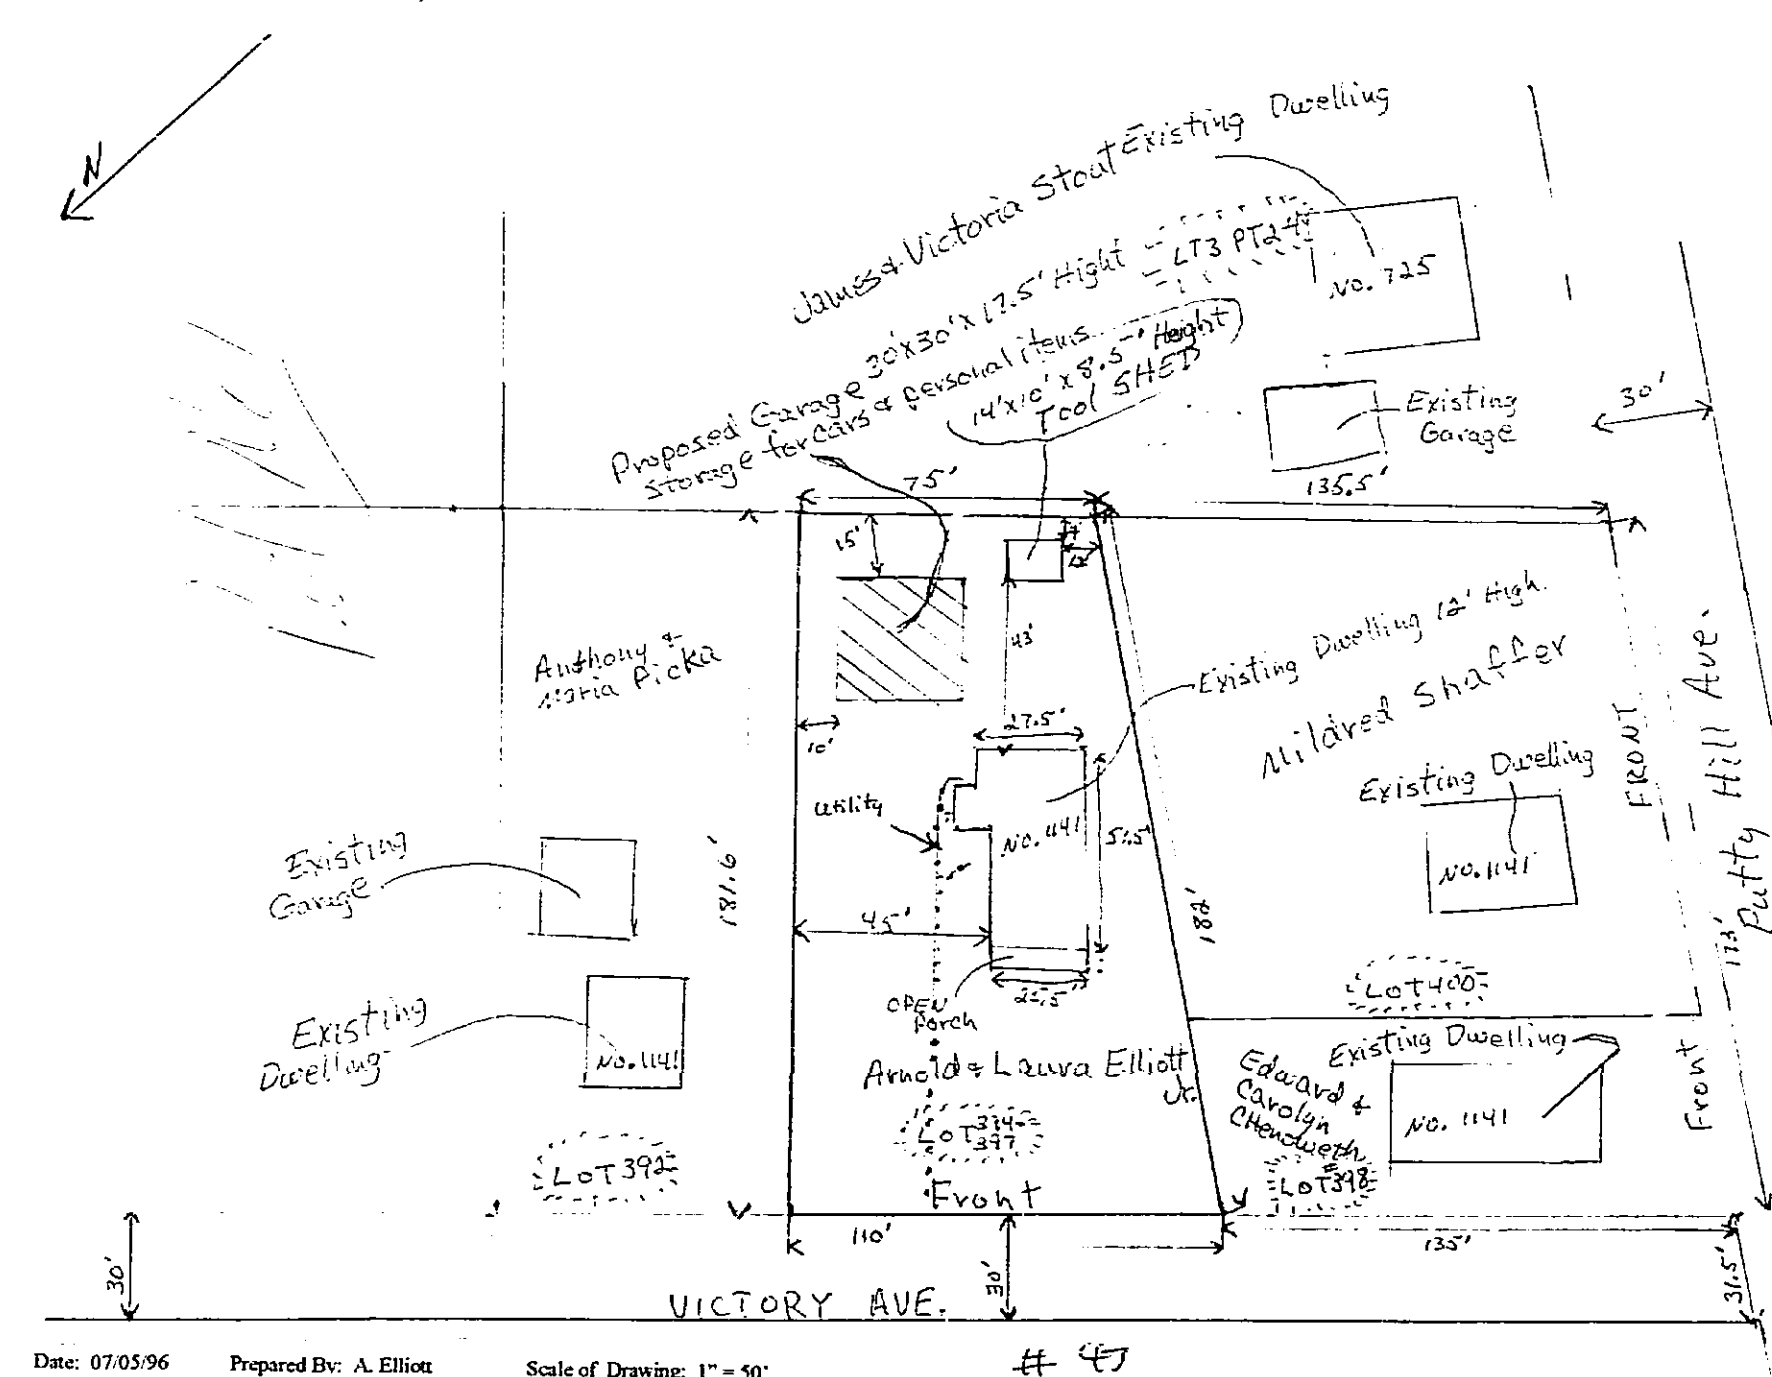 N
James & Victoria Stout
Existing Dwelling
LT3 PT24
No. 725
Proposed Garage 30'x30'x17.5' Hight
Storage for cars & personal items
14'x10'x8.5' Height
Tool SHED
Existing
Garage
30'
75'
135.5'
15'
43'
10'
Anthony &
Maria Picka
Existing Dwelling 12' High.
Mildred Shaffer
27.5'
FRONT
Putty Hill Ave.
Existing Dwelling
No. 1141
utility
No. 1141
51.5'
Existing
Garage
181.6'
182'
45'
173'
LOT 400
OPEN
Porch
Existing
Dwelling
No. 1141
Arnold & Laura Elliott
Jr.
Edward &
Carolyn
CHenoweth
Existing Dwelling
No. 1141
Front
LOT 392
LOT 394-
397
LOT 398
Front
110'
135'
30'
30'
31.5'
VICTORY AVE.
Date: 07/05/96 Prepared By: A. Elliott Scale of Drawing: 1" = 50'